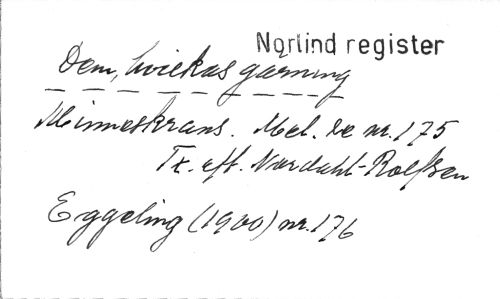 Norlind register
Dem, hvickas gärning
Minneskrans. Mel. se nr. 175
Tx. eft. Nordahl-Rolfsen
Eggeling (1900) nr. 176